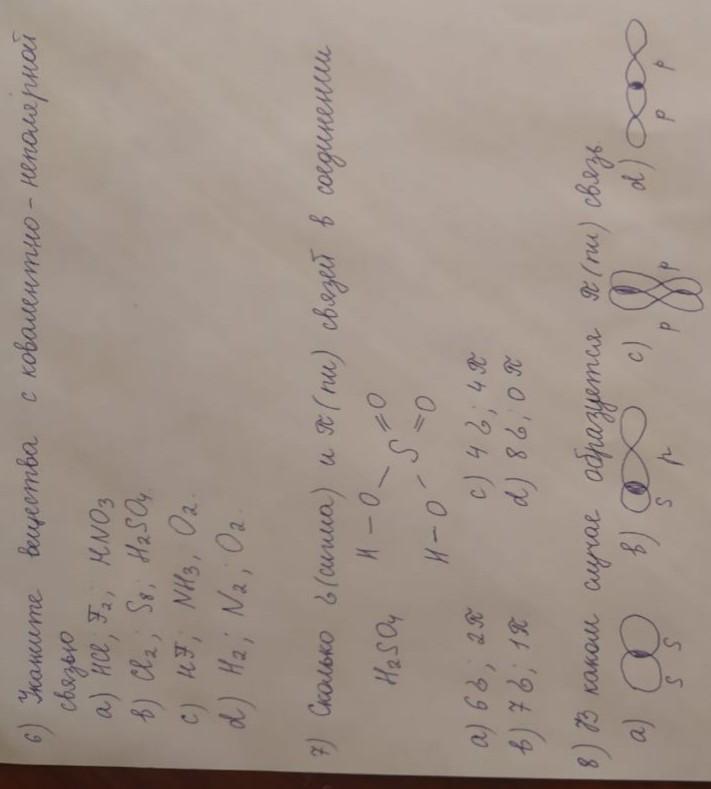 6) Укажите вещества с ковалентно-неполярной
связью
a) HCl; F2; HNO3
b) Cl2; S8; H2SO4.
c) HF; NH3, O2.
d) H2; N2; O2.
7) Сколько б(сигма) и π(пи) связей в соединении
H2SO4
H – O
S = O
H – O
= O
a) 6б; 2π
c) 4б; 4π
b) 7б; 1π
d) 8б; 0π
8) В каком случае образуется π(пи) связь
a) S S
b) S p
c) p p
d) p p